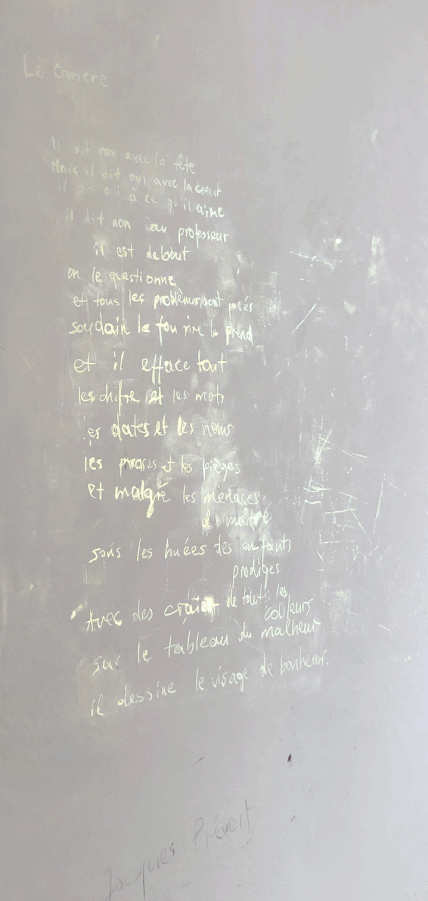 Le Cancre
Il dit non avec la tête
Mais il dit oui avec le coeur
il dit oui à ce qu'il aime
il dit non au professeur
il est debout
on le questionne
et tous les problèmes sont posés
soudain le fou rire le prend
et il efface tout
les chifre et les mots
les dates et les noms
les phrases et les pièges
et malgré les menaces
du maître
sous les huées des enfants
prodiges
Avec des craies de toutes les
couleurs
sur le tableau du malheur
il dessine le visage de bonheur.
Jacques Prévert